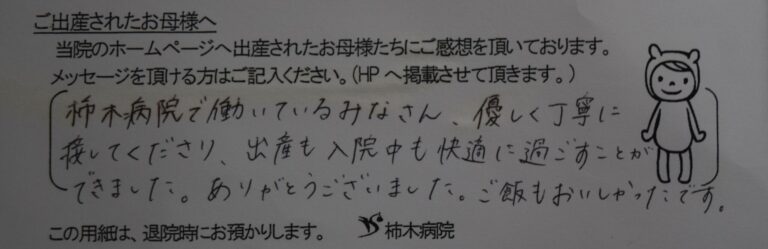 ご出産されたお母様へ
当院のホームページへ出産されたお母様たちにご感想を頂いております。
メッセージを頂ける方はご記入ください。(HPへ掲載させて頂きます。)
柿木病院で働いているみなさん、優しく丁寧に
接してくださり、出産も入院中も快適に過ごすことが
できました。ありがとうございました。ご飯もおいしかったです。
この用紙は、退院時にお預かりします。 柿木病院